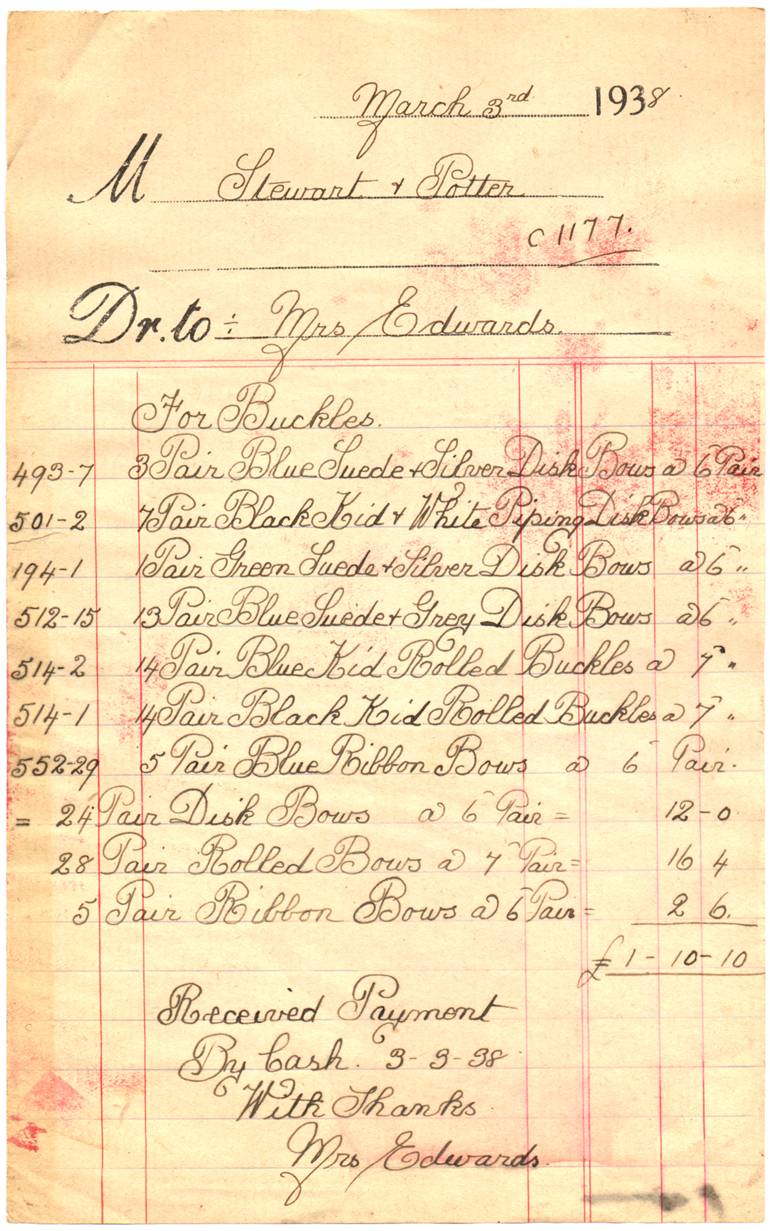 March 3rd 1938
M Stewart & Potter
C 1177.
Dr. to ÷ Mrs Edwards.
For Buckles.
493-7 3 Pair Blue Suede & Silver Disk Bows a 6 Pair
501-2 7 Pair Black Kid & White Piping Disk Bows a 6 "
194-1 1 Pair Green Suede & Silver Disk Bows a 6 "
512-15 13 Pair Blue Suede & Grey Disk Bows a 6 "
514-2 14 Pair Blue Kid Rolled Buckles a 7 "
514-1 14 Pair Black Kid Rolled Buckles a 7 "
552-29 5 Pair Blue Ribbon Bows a 6 Pair.
= 24 Pair Disk Bows a 6 Pair = 12-0
28 Pair Rolled Bows a 7 Pair = 16 4
5 Pair Ribbon Bows a 6 Pair = 2 6.
£1-10-10
Received Payment
By Cash. 3-3-38
With Thanks
Mrs Edwards.